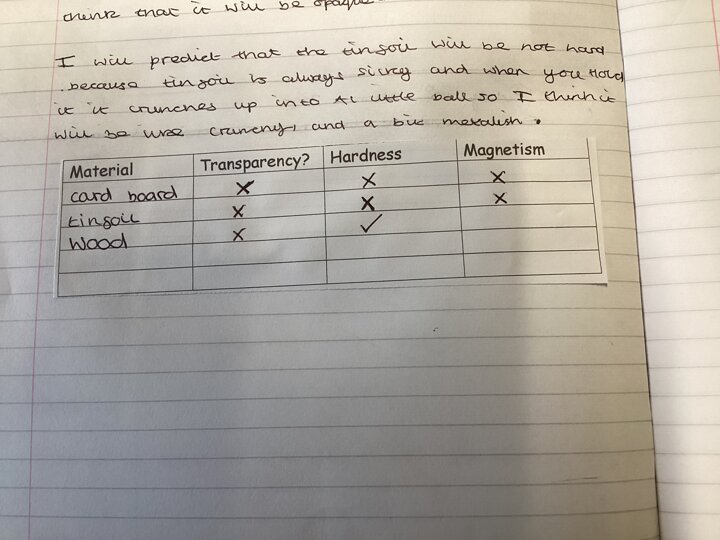 think that it will be opaque.
I will predict that the tinfoil will be not hard
because tinfoil is always silvey and when you Hold
it it crunches up into A little ball so I think it
will be like crunchy, and a bit metalish.
Material Transparency? Hardness Magnetism
card board X X X
tinfoil X X X
Wood X ✓